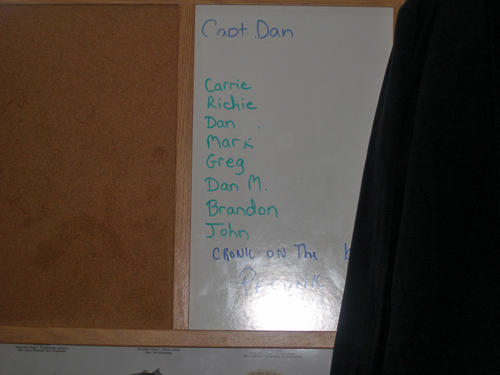 Capt. Dan
Carrie
Richie
Dan
Mark
Greg
Dan M.
Brandon
John
CRONIC ON The